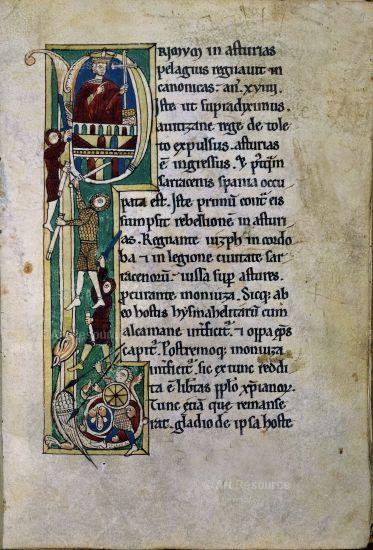 PRIMUM in asturias
pelagius regnauit in
canonicas. an̄. xviii.
Iste ut supradiximus.
auitizane rege de tole
to expulsus. asturias
ē ingressus. &
sarraceni spania occu
pata est. Iste primū cont̄ eis
sumpsit rebellionē in asturi
as. Regnante iuzeph in cordo
ba ⁊ in legione ciuitate sar
racenorū. iussa sup astures.
p̄curante monuiza. Sicq; ab
eo hostis hysmahelitarū cum
alcamane int̄ficit᷒. ⁊ oppa ep̄s
capit᷒. Postremoq; monuiza
int̄ficit᷒. sic ex tunc reddi
ta ē lib̄tas pp̄lo xp̄ianor.
Tunc etiā que remanse
rat. gladio de ipsa hoste
© Art Resource